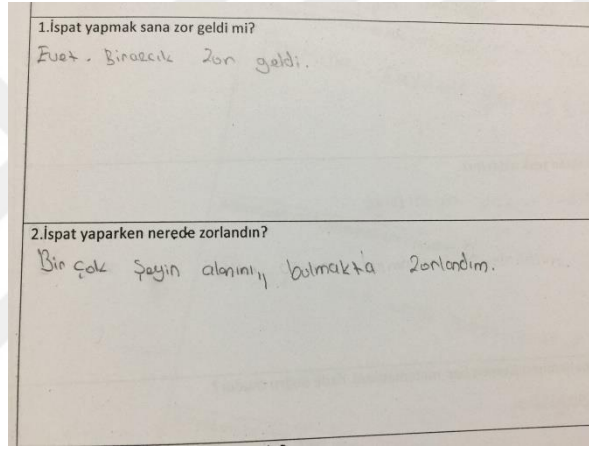 1.İspat yapmak sana zor geldi mi?
Evet. Birazcık zor geldi.
2.İspat yaparken nerede zorlandın?
Bir çok şeyin alanını,, bulmakta zorlandım.